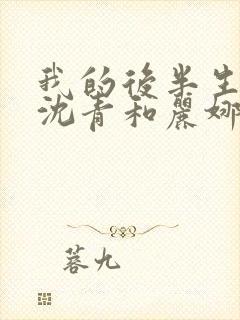 我的後半生
沈青和麗娜
蓉九